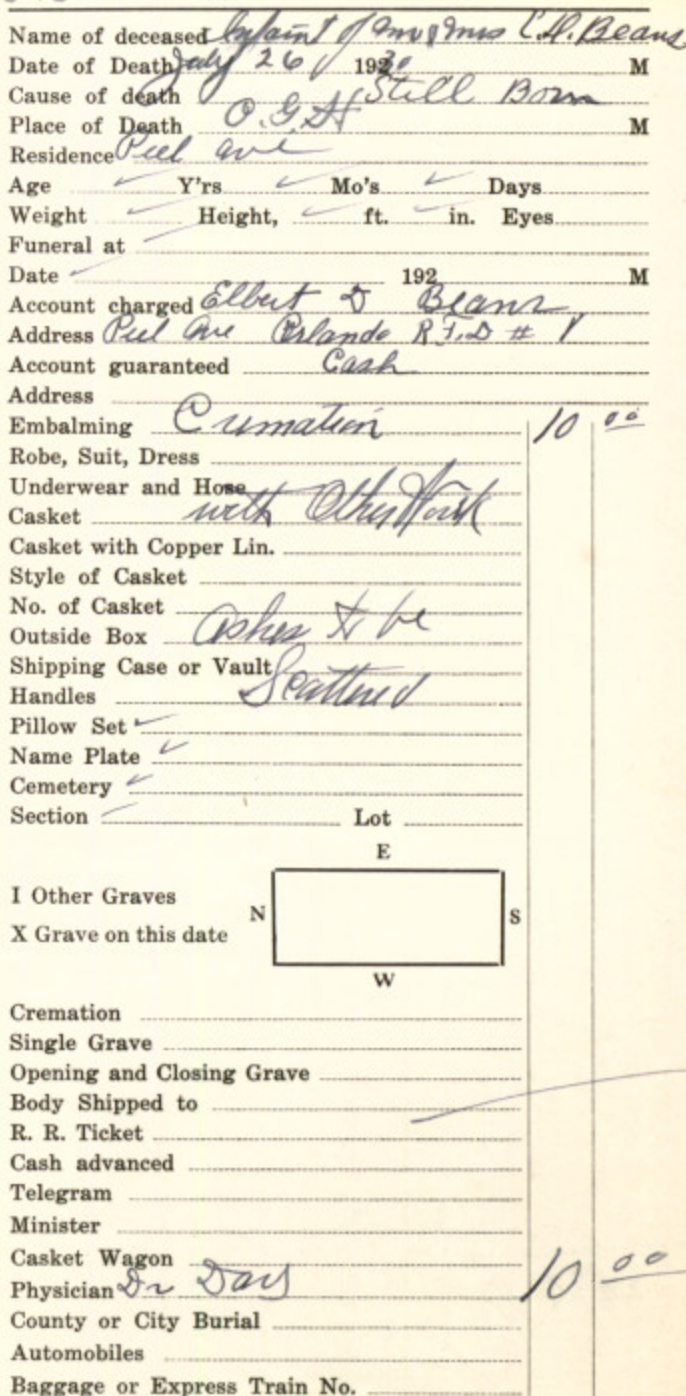 Name of deceased Infaint of Mr & Mrs E.D. Beans
Date of Death July 26 1930 M
Cause of death Still Born
Place of Death O.G.H M
Residence Peel ave
Age Y'rs Mo's Days
Weight Height, ft. in. Eyes
Funeral at
Date 192 M
Account charged Elbert D Beans
Address Peel Ave Orlando R.F.D # 1
Account guaranteed Cash
Address
Embalming Cremation 10 00
Robe, Suit, Dress
Underwear and Hose
Casket with Other Work
Casket with Copper Lin.
Style of Casket
No. of Casket
Outside Box Ashes to be
Shipping Case or Vault
Handles Scattered
Pillow Set
Name Plate
Cemetery
Section Lot
E
I Other Graves
N S
X Grave on this date
W
Cremation
Single Grave
Opening and Closing Grave
Body Shipped to
R. R. Ticket
Cash advanced
Telegram
Minister
Casket Wagon
Physician Dr Day 10 00
County or City Burial
Automobiles
Baggage or Express Train No.